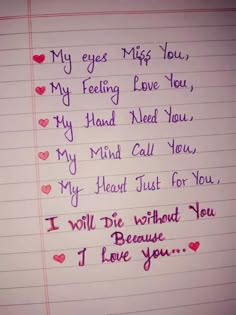 My eyes Miss You,
My Feeling Love You,
My Hand Need You,
My Mind Call You,
My Heart Just for You,
I will Die without You
Because
I love you...